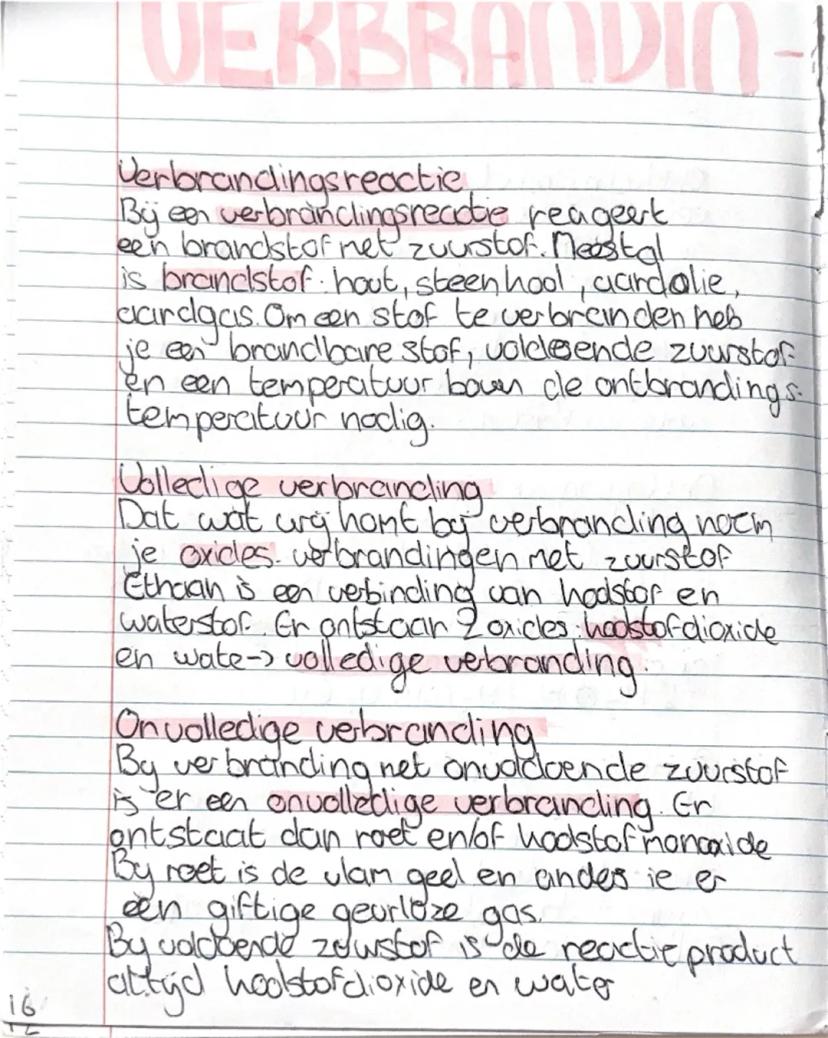 VERBRANDIN-
Verbrandingsreactie
Bij een verbrandingsreactie reageert
een brandstof met zuurstof. Meestal
is brandstof: hout, steenkool, aardolie,
aardgas. Om een stof te verbranden heb
je een brandbare stof, voldoende zuurstof
en een temperatuur boven de ontbrandings-
temperatuur nodig.
Volledige verbranding
Dat wat vrij komt bij verbranding noem
je oxides. verbrandingen met zuurstof
Ethaan is een verbinding van koolstof en
waterstof. Er ontstaan 2 oxides: koolstofdioxide
en wate-> volledige verbranding.
Onvolledige verbranding
By verbranding met onvoldoende zuurstof
is er een onvolledige verbranding. Er
ontstaat dan roet en/of koolstofmonoxide
By roet is de vlam geel en anders ie er
een giftige geurloze gas.
By voldoende zuurstof is de reactieproduct
altijd koolstofdioxide en water
16
12